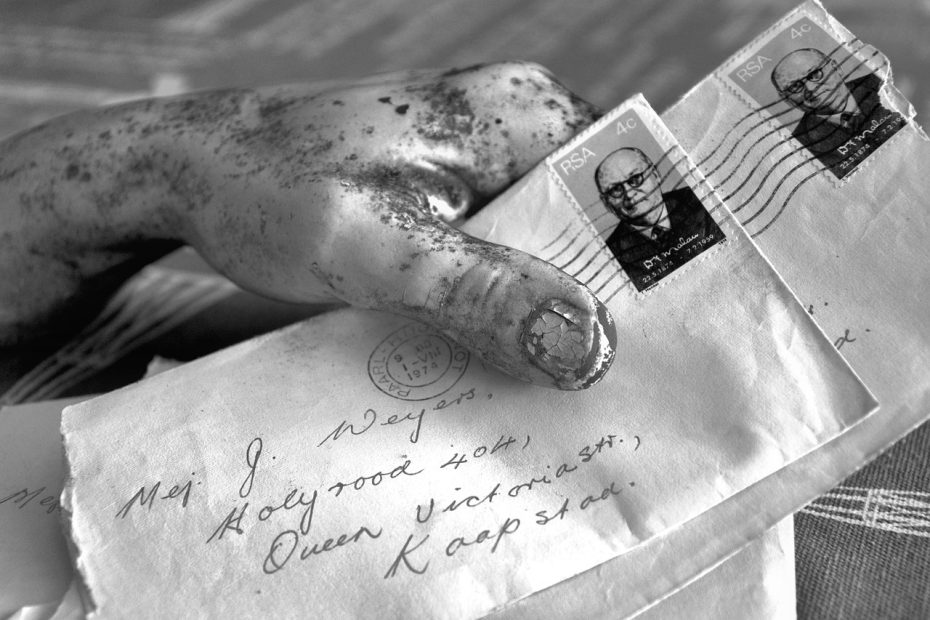 RSA 4c
D F Malan
22.5.1874 - 7.2.1959
RSA 4c
D F Malan
22.5.1874 - 7.2.19
PAARL
9
1-VIII
1974
Mej. J. Weyers.
Holyrood 404,
Queen Victoria str.,
Kaapstad.
d.
Mej